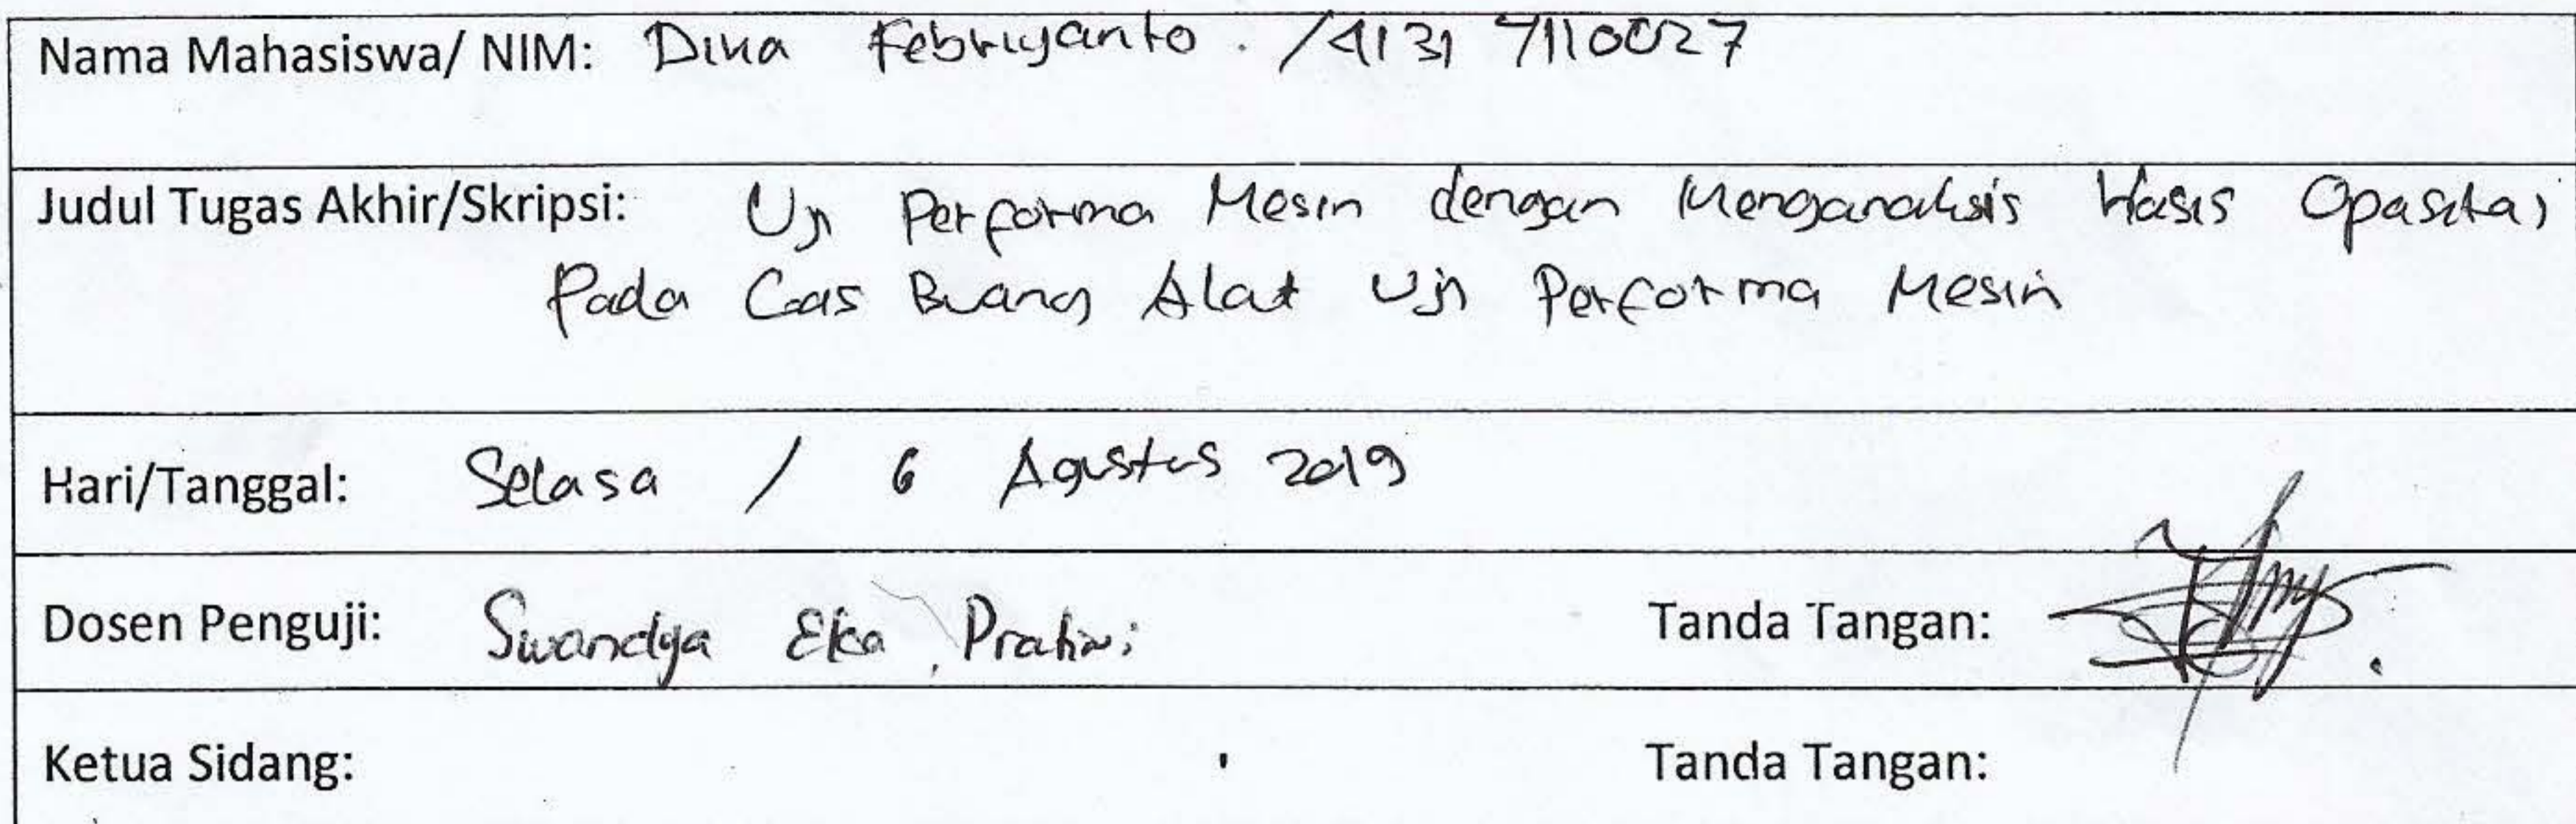 Nama Mahasiswa/ NIM: Dika Febriyanto . /41317110027
Judul Tugas Akhir/Skripsi: Uji Performa Mesin dengan Menganalisis Hasis Opasitas
Pada Gas Buang Alat Uji Performa Mesin
Hari/Tanggal: Selasa / 6 Agustus 2019
Dosen Penguji: Swandya Eka Pratiwi Tanda Tangan:
Ketua Sidang: Tanda Tangan: